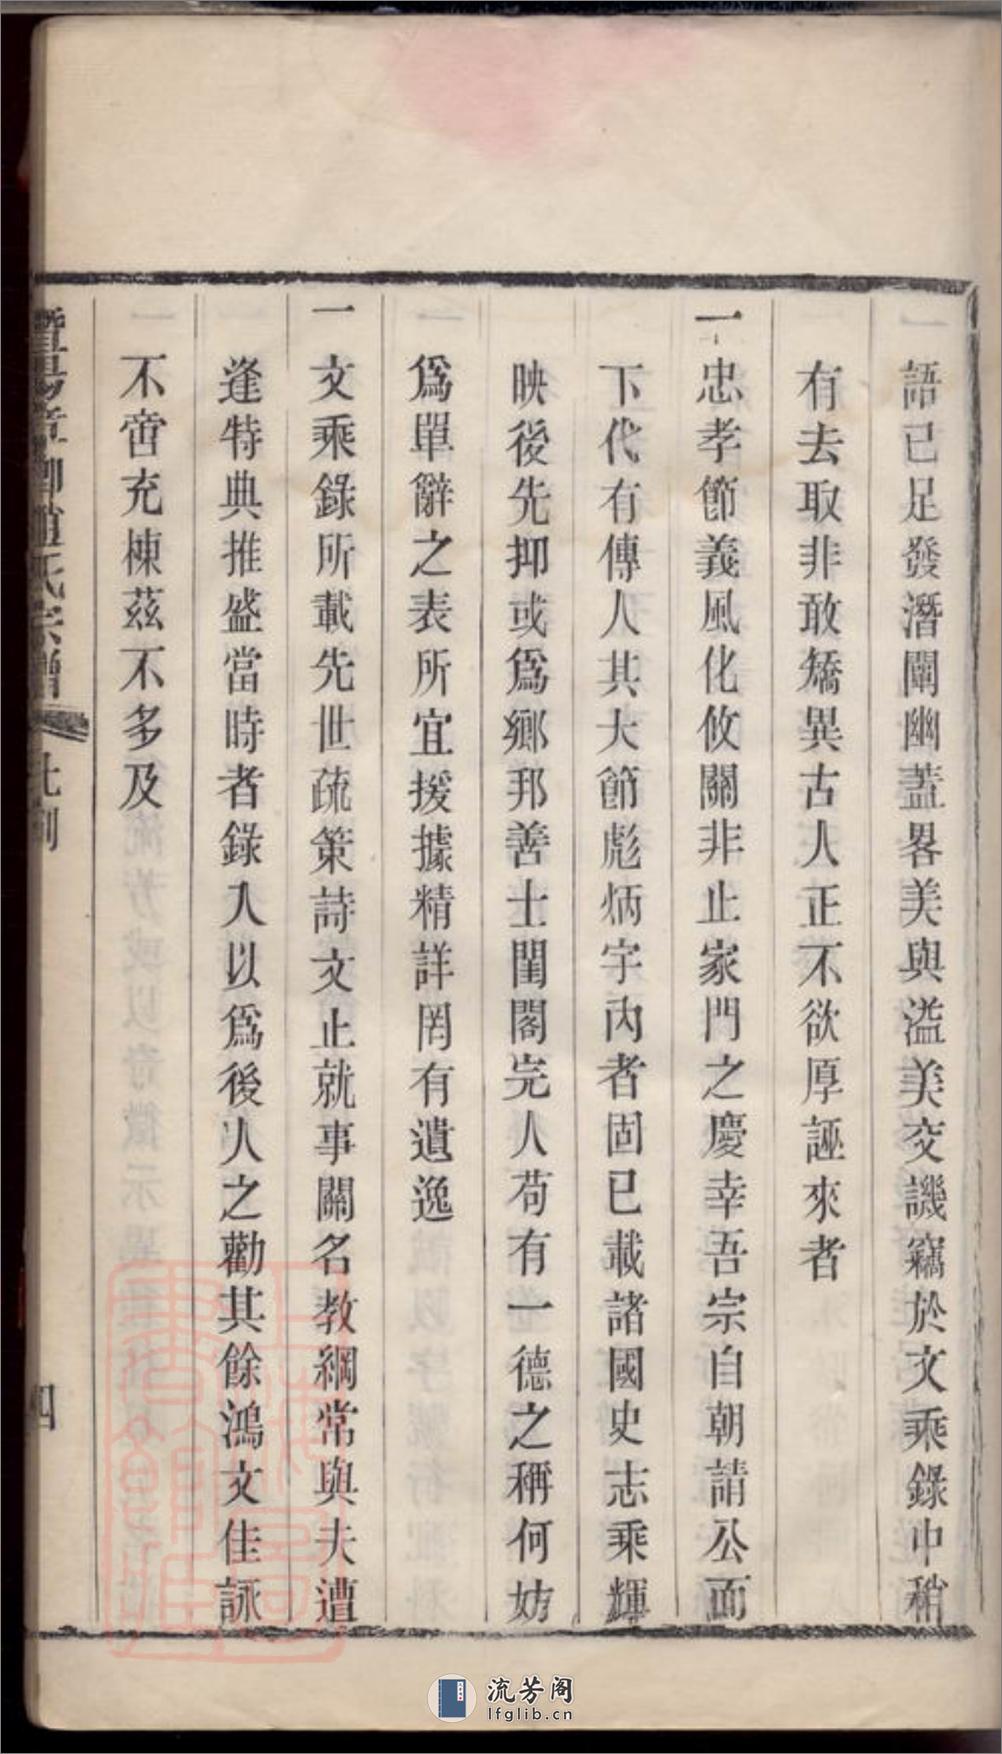 語已足發潛闡幽蓋畧美與溢美交譏竊於文乘錄中稍
有去取非敢矯異古人正不欲厚誣來者
一忠孝節義風化攸關非止家門之慶幸吾宗自朝請公而
下代有傳人其大節彪炳宇內者固已載諸國史志乘輝
映後先抑或爲鄉邦善士閨閣完人苟有一德之稱何妨
爲單辭之表所宜援據精詳罔有遺逸
一文乘錄所載先世疏策詩文止就事關名教綱常與夫遭
逢特典推盛當時者錄入以爲後人之勸其餘鴻文佳詠
不啻充棟茲不多及
氏宗譜
四
流芳阁
lfglib.cn